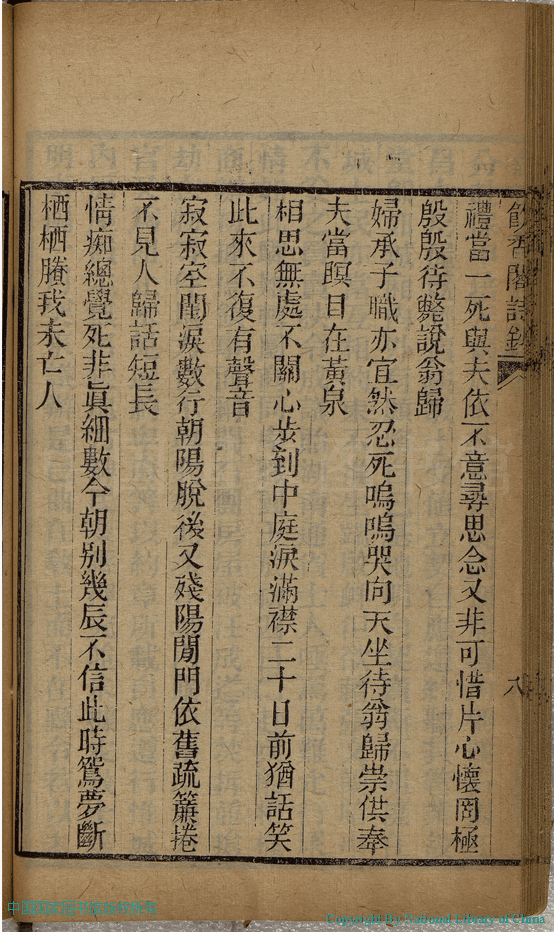 飲香閣詩鈔
八
禮當一死與夫依不意尋思念又非可惜片心懷罔極
殷殷待斃說翁歸
婦承子職亦宜然忍死嗚嗚哭向天坐待翁歸崇供奉
夫當瞑目在黃泉
相思無處不關心步到中庭淚滿襟二十日前猶話笑
此來不復有聲音
寂寂空閨淚數行朝陽脫後又殘陽閒門依舊疏簾捲
不見人歸話短長
情痴總覺死非眞細數今朝别幾辰不信此時鴛夢斷
栖栖賸我未亡人
Copyright By National Library of China